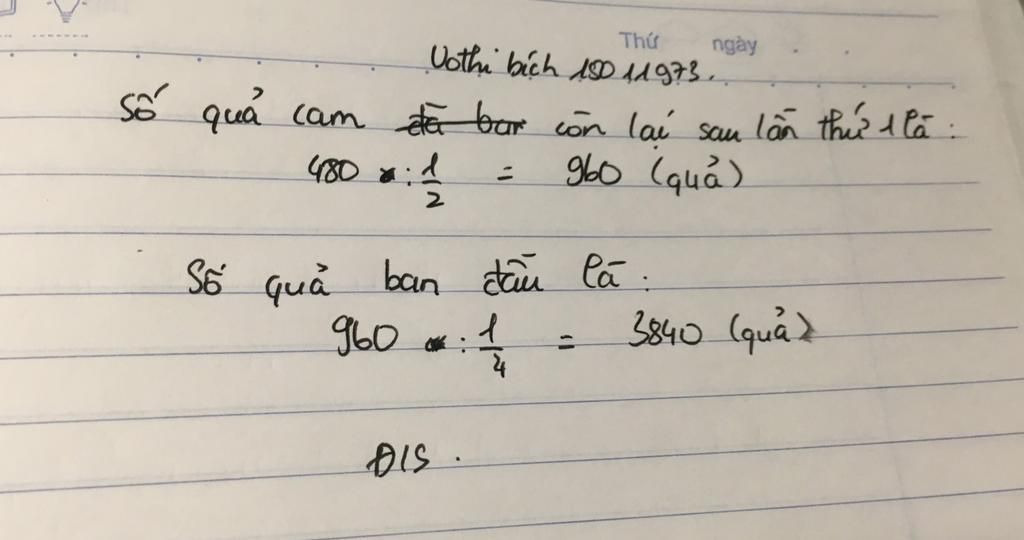 Thứ ngày
Vothi bích 15011973.
Số quả cam đã bar còn lại sau lần thứ 1 là :
480 : 1/2 = 960 (quả)
Số quả ban đầu là :
960 : 1/4 = 3840 (quả)
Đ/S .